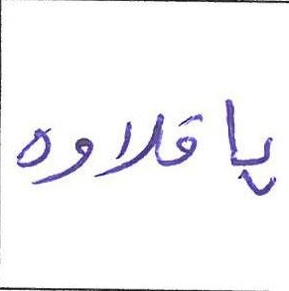 باقلاوه